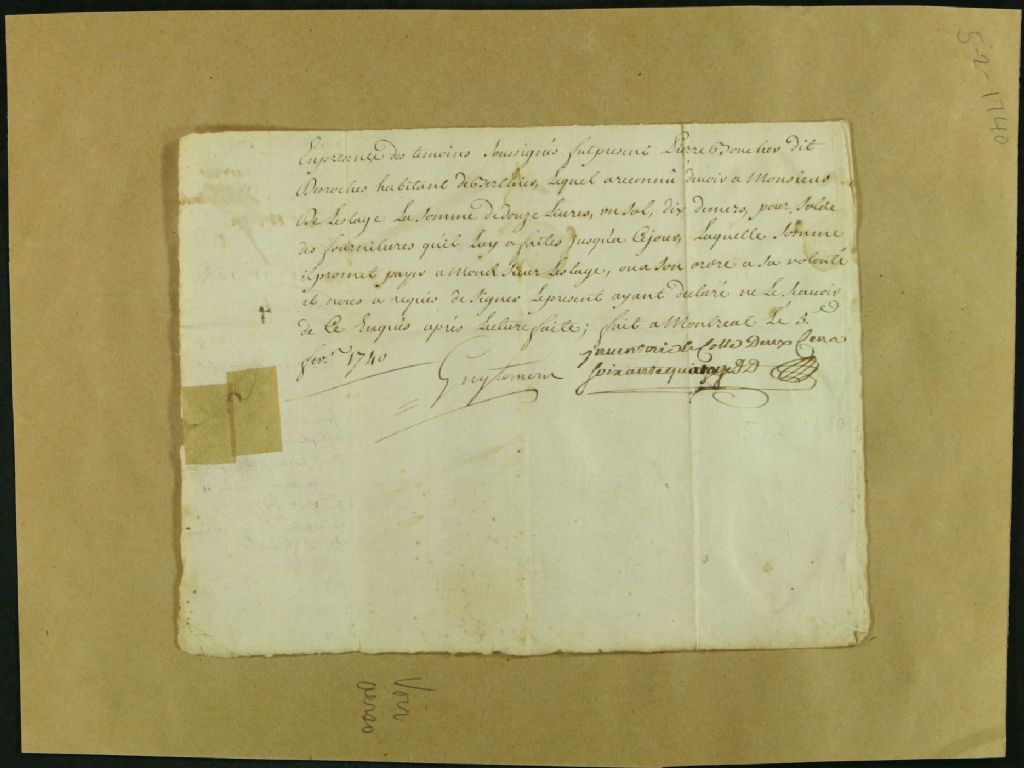 5-2-1740
En presence des temoins Soussignés fut present Pierre Boucher dit
Desroches habitant de Berthier, Lequel a reconnû devoir a Monsieur
De Lestage La Somme de douze Livres, un Sol, dix deniers, pour Solde
des fournitures qu'il Luy a faites jusqu'a Cejour, Laquelle Somme
il promet payer a Mond. Sieur Lestage, ou a Son ordre a Sa volonté
et nous a requis de Signer Lepresent ayant declaré ne Le Scavoir
de Ce Enquis après Lecture faite; fait a Montreal Le 5.e
fevr. 1740
Guy temoin
Inventorié la Cotte Deux Cens
Soixante quatorze
Voir
verso